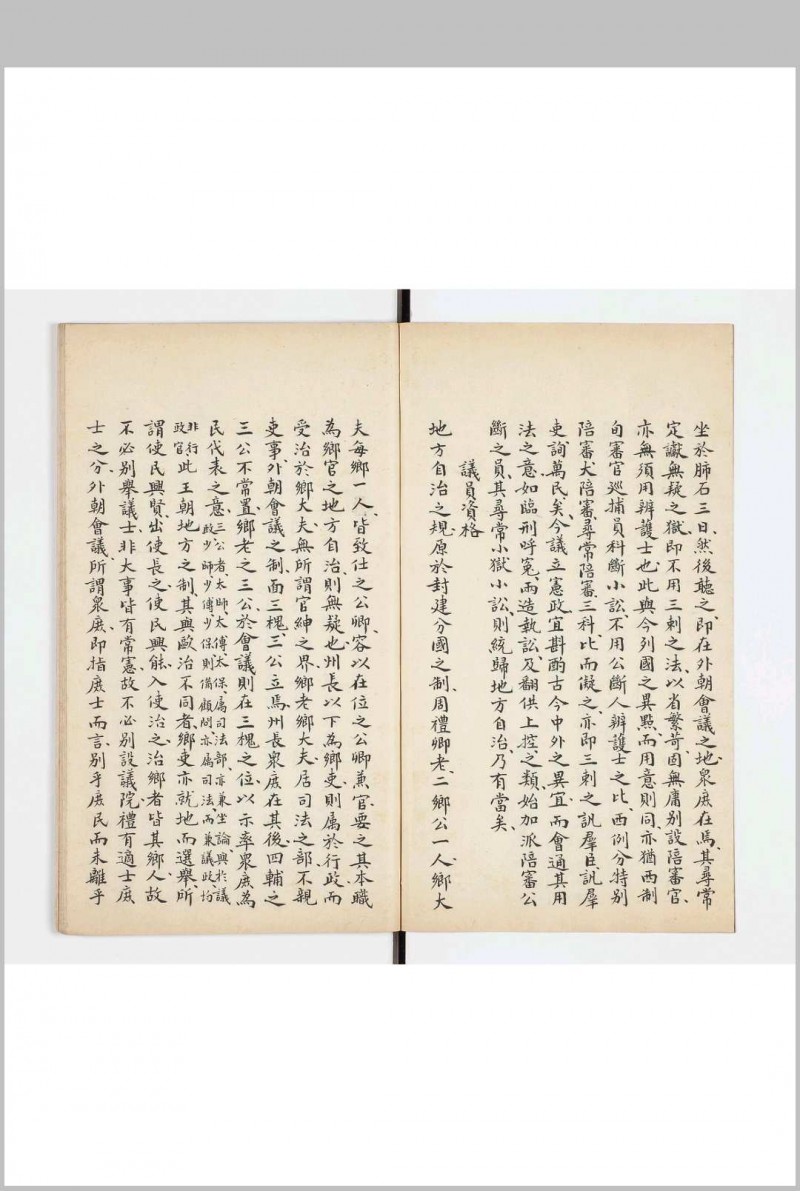 坐於肺石三日、然後聽之、即在外朝會議之地、衆庶在焉、其尋常
定讞無疑之獄、即不用三刺之法、以省繁苛、固無庸別設陪審官、
亦無須用辨護士也、此與今列國之異點、而用意則同、亦猶西制
旬審官巡捕員科斷小訟、不用公斷人辨護士之比、西例分特別
陪審、大陪審、尋常陪審三科、比而儗之、亦即三刺之訊羣臣訊羣
吏詢萬民矣、今議立憲政、宜斟酌古今中外之異宜、而會通其用
法之意、如臨刑呼冤、兩造執訟、及翻供上控之類、始加派陪審公
斷之員、其尋常小獄小訟、則統歸地方自治、乃有當矣、
議員資格
地方自治之規、原於封建分國之制、周禮鄉老、二鄉公一人、鄉大
夫每鄉一人、皆致仕之公卿、容以在位之公卿兼官、要之其本職
為鄉官之地方自治、則無疑也、州長以下為鄉吏、則屬於行政、而
受治於鄉大夫、無所謂官紳之界、鄉老鄉大夫、居司法之部、不親
吏事、外朝會議之制、面三槐、三公立焉、州長衆庶在其後、四輔之
三公不常置、鄉老之三公、於會議則在三槐之位、以示率衆庶為
民代表之意、三公者、太師、太傅、太保、屬司法部、亦兼坐論、與於議
政、少師少傅少保則備顧問、亦屬司法、而兼議政、均
非行
政官此王朝地方之制、其與歐治不同者、鄉吏亦就地而選舉、所
謂使民興賢、出使長之、使民興能、入使治之、治鄉者皆其鄉人、故
不必別舉議士、非大事皆有常憲、故不必別設議院、禮有適士庶
士之分、外朝會議、所謂衆庶、即指庶士而言、別乎庶民而未離乎